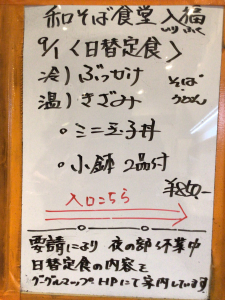 和そば食堂 入福
9/1〈日替定食〉
冷)ぶっかけ そば・
温)きざみ うどん
・ミニ玉子丼
・小鉢 2品付
入口こちら
要請により 夜の部 休業中
日替定食の内容を
グーグルマップ HPにて案内しています